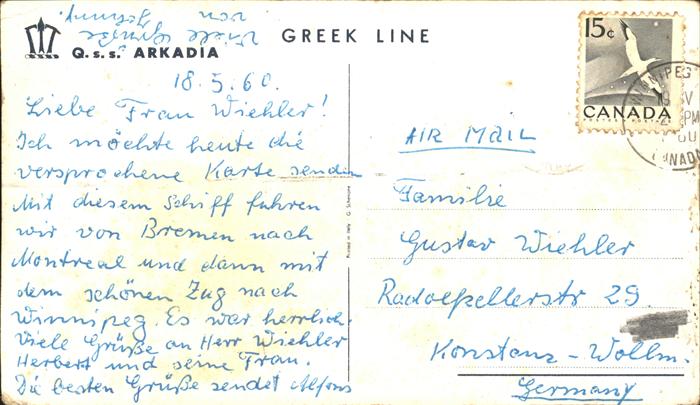 GREEK LINE
Q.s.s. ARKADIA
18.5.60.
Liebe Frau Wiehler!
Ich möchte heute die
versprochene Karte senden
Mit diesem Schiff fuhren
wir von Bremen nach
Montreal und dann mit
dem schönen Zug nach
Winnipeg. Es war herrlich.
Viele Grüße an Herr Wiehler
Herbert und seine Frau.
Die besten Grüße sendet Alfons
viele Grüße
von
Printed in Italy
15¢
CANADA
POSTES POSTAGE
WINNIPEG
PM
CANADA
AIR MAIL
Familie
Gustav Wiehler
Radolfzellerstr 29.
Konstanz - Wollm.
Germany